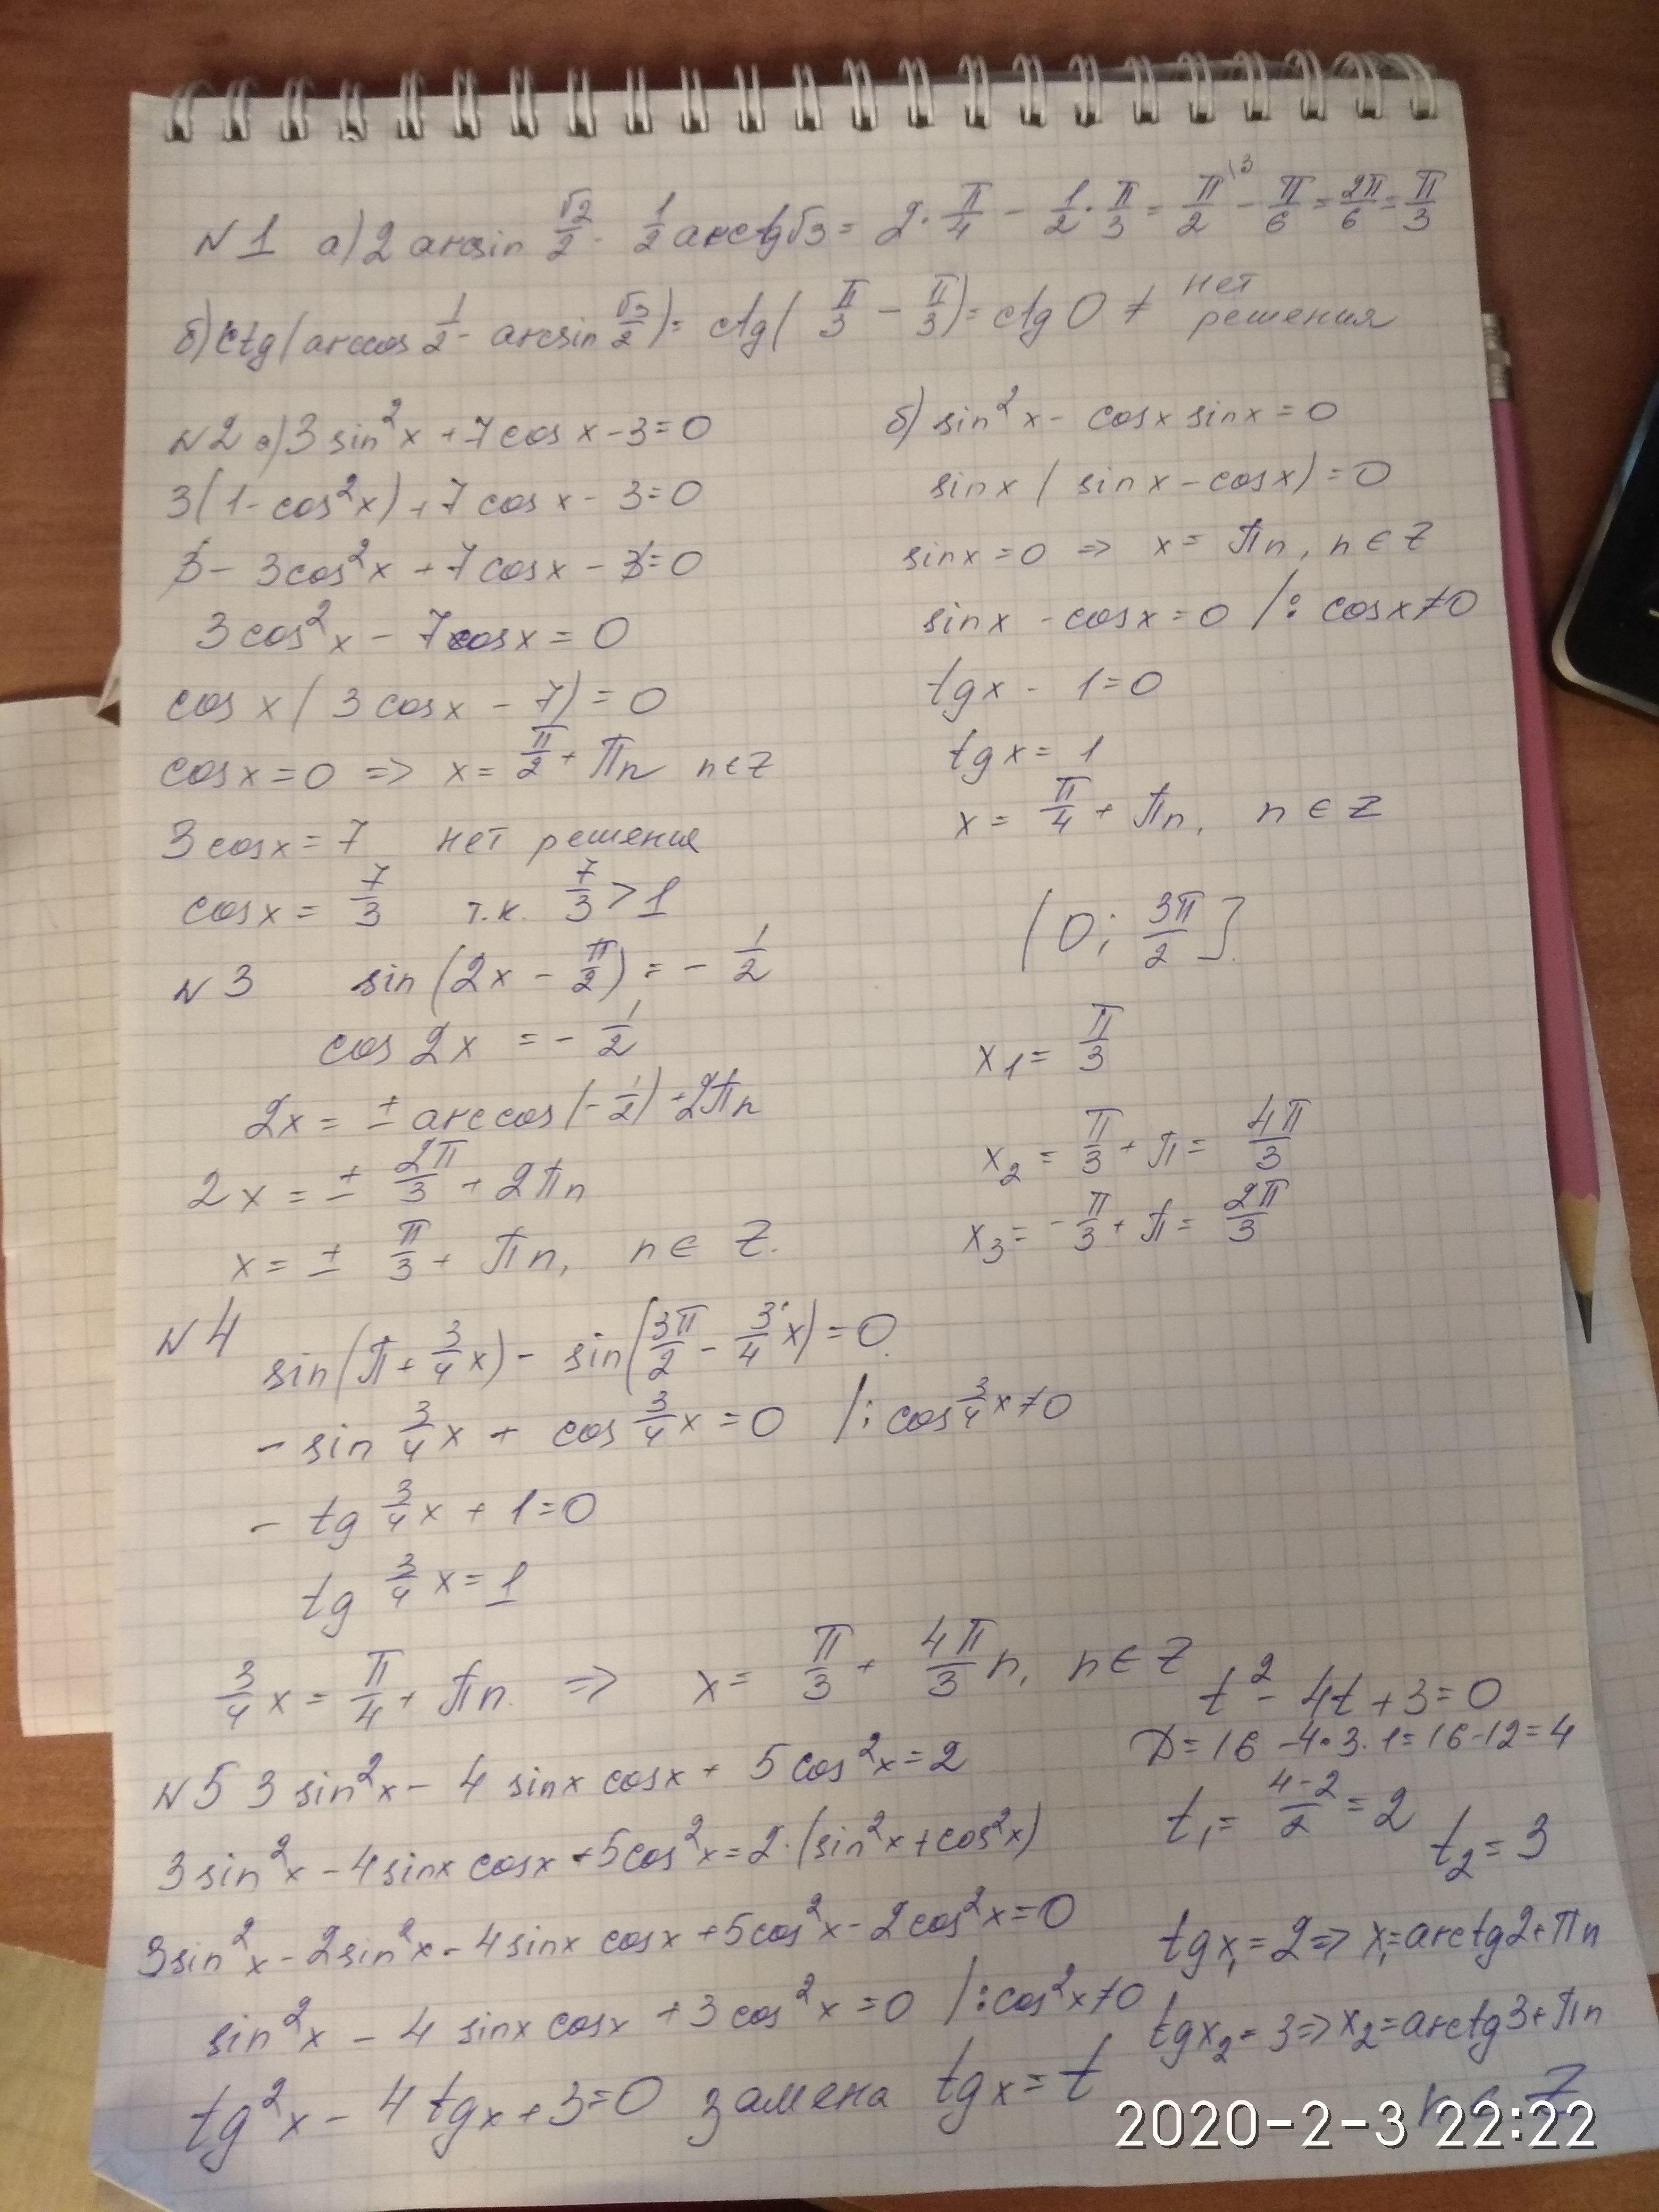 N1 а) 2 arcsin √2/2 - 1/2 arcctg√3 = 2·π/4 - 1/2·π/3 = π/2\3 - π/6 = 2π/6 = π/3
б) ctg(arccos 1/2 - arcsin √3/2) = ctg(π/3 - π/3) = ctg 0 ≠ нет решения
N2 а) 3 sin²x + 7 cos x - 3 = 0
3(1 - cos²x) + 7 cos x - 3 = 0
3 - 3cos²x + 7cosx - 3 = 0
3cos²x - 7cosx = 0
cos x (3 cosx - 7) = 0
cosx = 0 => x = π/2 + πn n∈Z
3cosx = 7 нет решения
cosx = 7/3 т.к. 7/3 > 1
б) sin²x - cosx sinx = 0
sinx (sinx - cosx) = 0
sinx = 0 => x = πn, n∈Z
sinx - cosx = 0 /: cosx≠0
tgx - 1 = 0
tgx = 1
x = π/4 + πn, n∈Z
N3 sin(2x - π/2) = - 1/2
cos 2x = - 1/2
2x = ± arccos(-1/2) + 2πn
2x = ± 2π/3 + 2πn
x = ± π/3 + πn, n∈Z.
(0; 3π/2].
x1 = π/3
x2 = π/3 + π = 4π/3
x3 = -π/3 + π = 2π/3
N4 sin(π + 3/4x) - sin(3π/2 - 3/4x) = 0.
- sin 3/4x + cos 3/4x = 0 /: cos 3/4x≠0
- tg 3/4x + 1 = 0
tg 3/4x = 1
3/4x = π/4 + πn. => x = π/3 + 4π/3n, n∈Z
N5 3 sin²x - 4 sinx cosx + 5cos²x = 2
3sin²x - 4sinx cosx + 5cos²x = 2·(sin²x + cos²x)
3sin²x - 2sin²x - 4sinx cosx + 5cos²x - 2cos²x = 0
sin²x - 4 sinx cosx + 3cos²x = 0 /: cos²x≠0
tg²x - 4tgx + 3 = 0 замена tgx = t
t² - 4t + 3 = 0
D = 16 - 4·3·1 = 16-12 = 4
t1 = 4-2/2 = 2 t2 = 3
tgx1 = 2 => x1 = arctg2 + πn
tgx2 = 3 => x2 = arctg3 + πn
n∈Z
2020-2-3 22:22